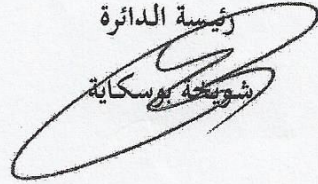 رئيسة الدائرة
شويحة بوسكاية